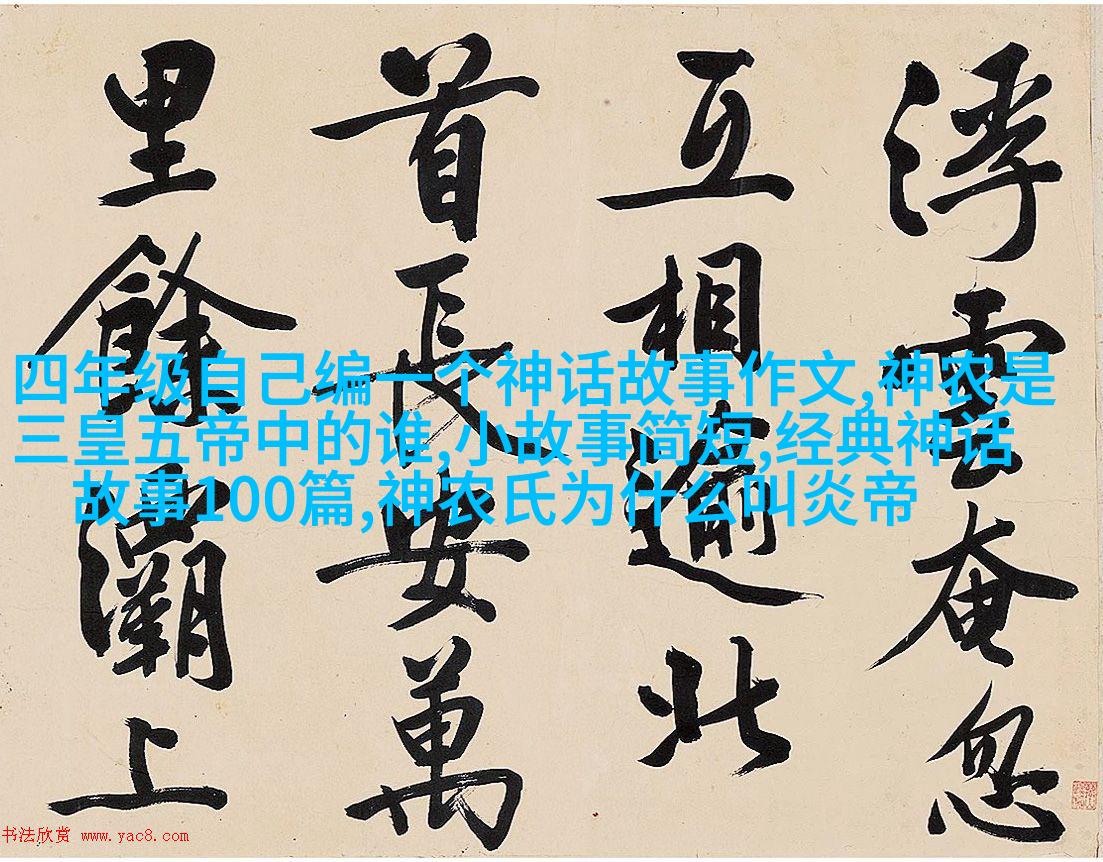 浮雲奄忽
互相逾北
首長安萬
里餘灞上
四年级自己编一个神话故事作文,神农是
三皇五帝中的谁,小故事简短,经典神话
故事100篇,神农氏为什么叫炎帝
书法欣赏 www.yac8.com